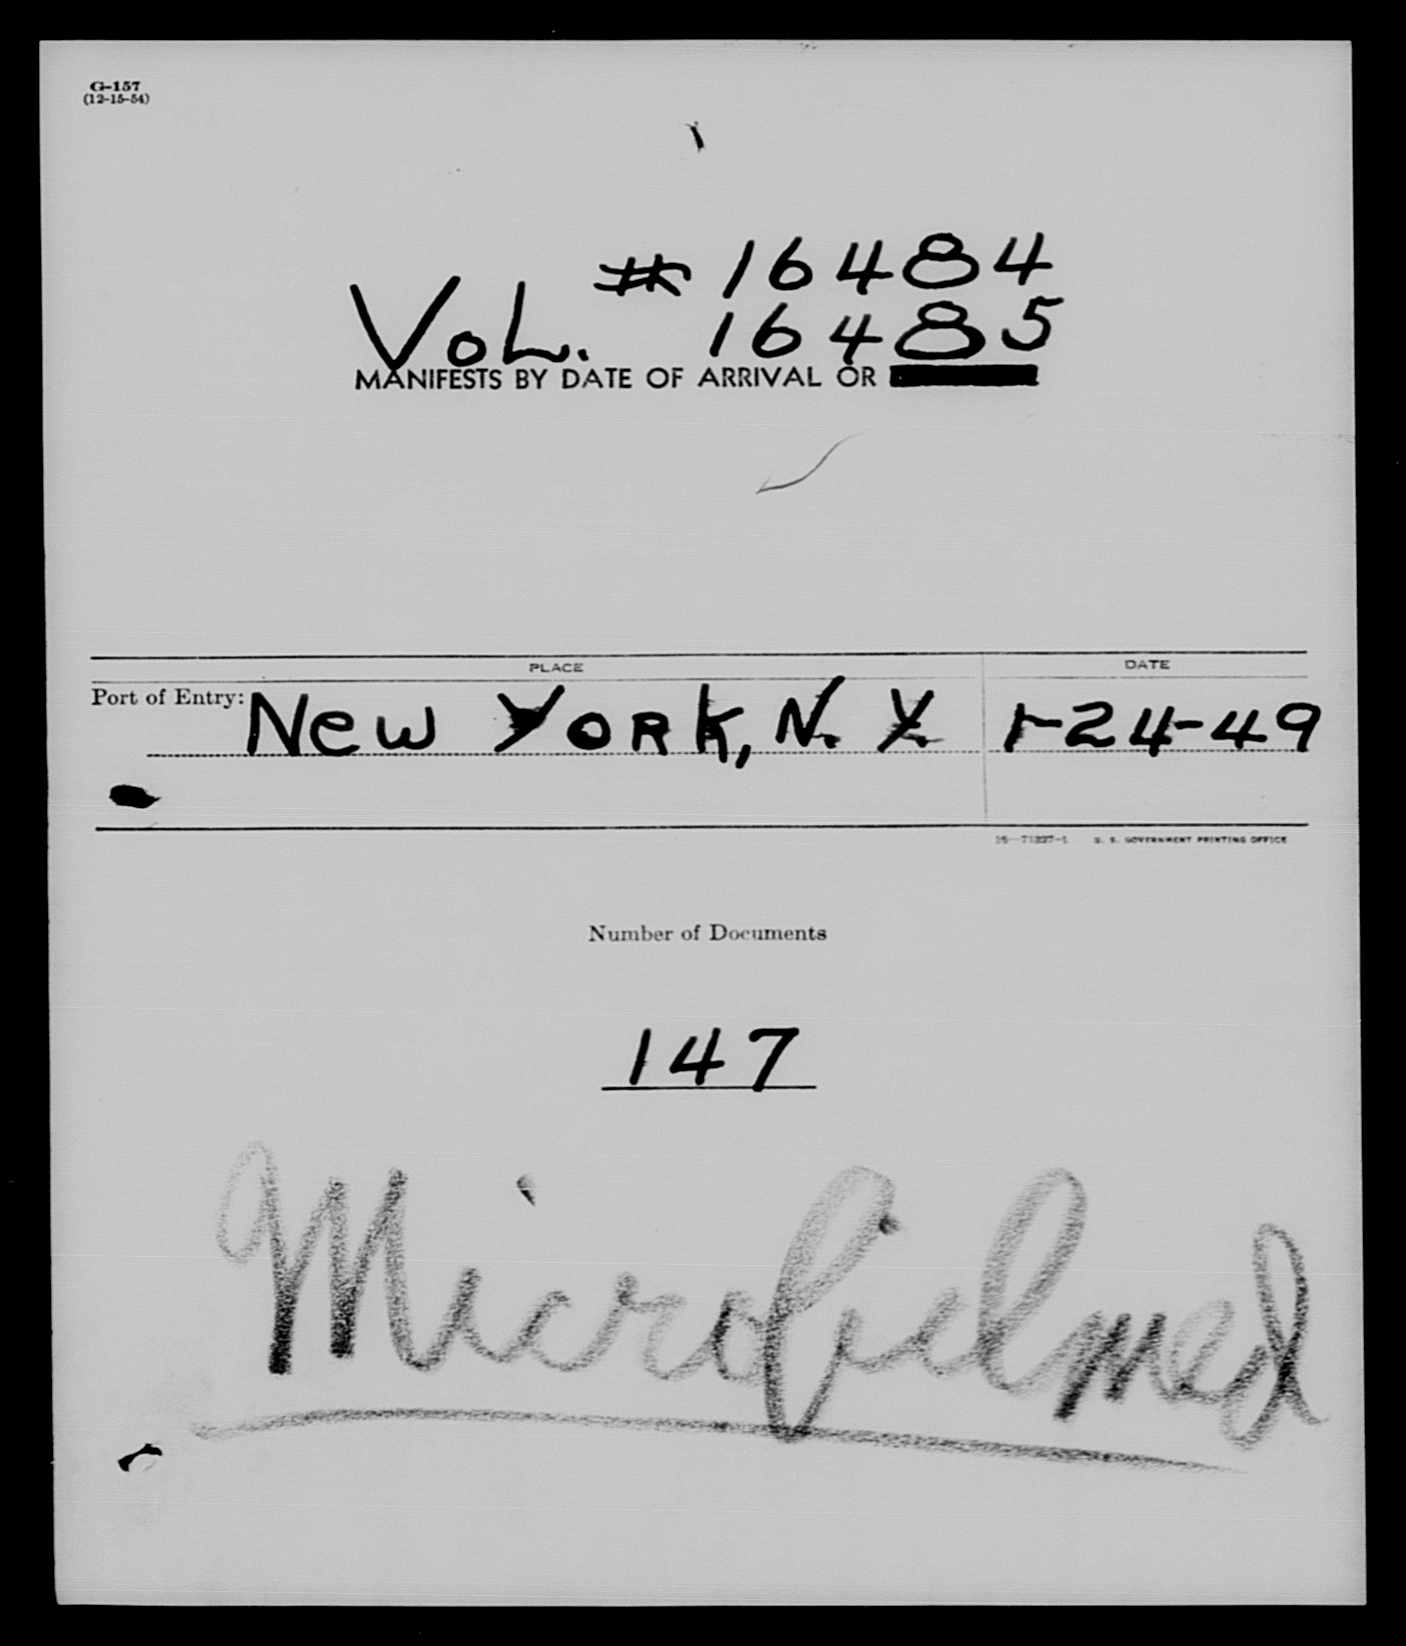 G-157
(12-15-54)
# 16484
VOL. 16485
MANIFESTS BY DATE OF ARRIVAL OR
PLACE
DATE
Port of Entry: New York, N. Y. 1-24-49
16—71237-1 U. S. GOVERNMENT PRINTING OFFICE
Number of Documents
147
Microfilmed